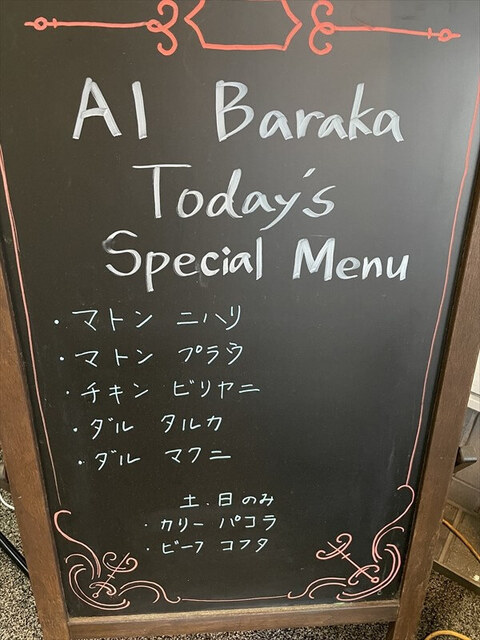 Al Baraka
Today's
Special Menu
・マトン ニハリ
・マトン プラウ
・チキン ビリヤニ
・ダル タルカ
・ダル マクニ
土.日のみ
・カリー パコラ
・ビーフ コフタ